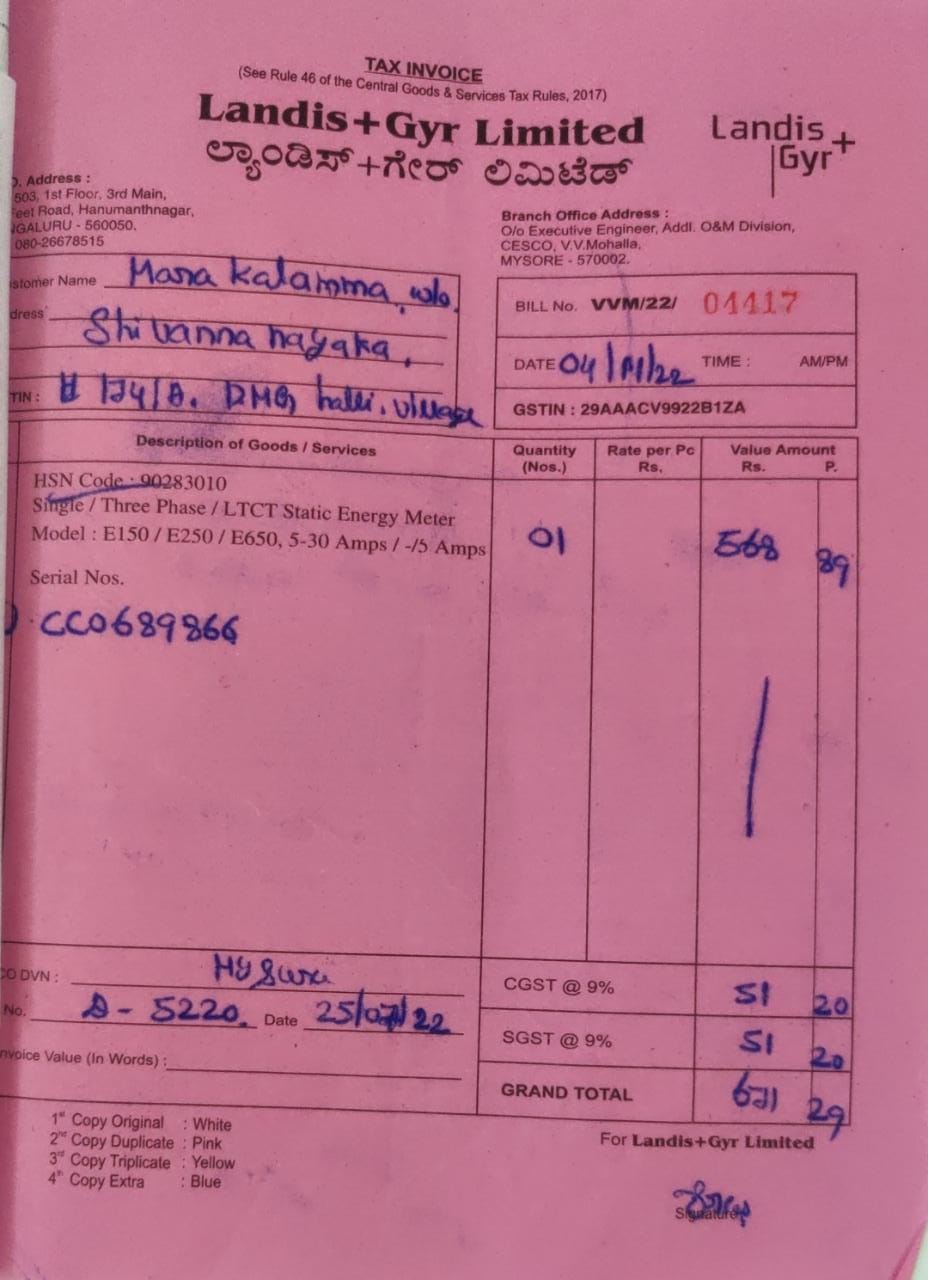 TAX INVOICE
(See Rule 46 of the Central Goods & Services Tax Rules, 2017)
Landis+Gyr Limited
ಲ್ಯಾಂಡಿಸ್+ಗೇರ್ ಲಿಮಿಟೆಡ್
Landis+
Gyr
. Address :
503, 1st Floor, 3rd Main,
eet Road, Hanumanthnagar,
GALURU - 560050.
080-26678515
Branch Office Address :
O/o Executive Engineer, Addl. O&M Division,
CESCO, V.V.Mohalla,
MYSORE - 570002.
stomer Name Mara kalamma w/o
dress Shivanna nayaka,
TIN : halli. village
BILL No. VVM/22/ 04417
DATE 04/ /22 TIME : AM/PM
GSTIN : 29AAACV9922B1ZA
Description of Goods / Services Quantity (Nos.) Rate per Pc Rs. Value Amount Rs. P.
HSN Code : 90283010
Single / Three Phase / LTCT Static Energy Meter
Model : E150 / E250 / E650, 5-30 Amps / -/5 Amps 01 568 89
Serial Nos.
CC0689866
O DVN :
CGST @ 9% 51 20
No. - 5220. Date 25/07/22
SGST @ 9% 51 20
nvoice Value (In Words) :
GRAND TOTAL 671 29
1st Copy Original : White
2nd Copy Duplicate : Pink
3rd Copy Triplicate : Yellow
4th Copy Extra : Blue
For Landis+Gyr Limited
Signature